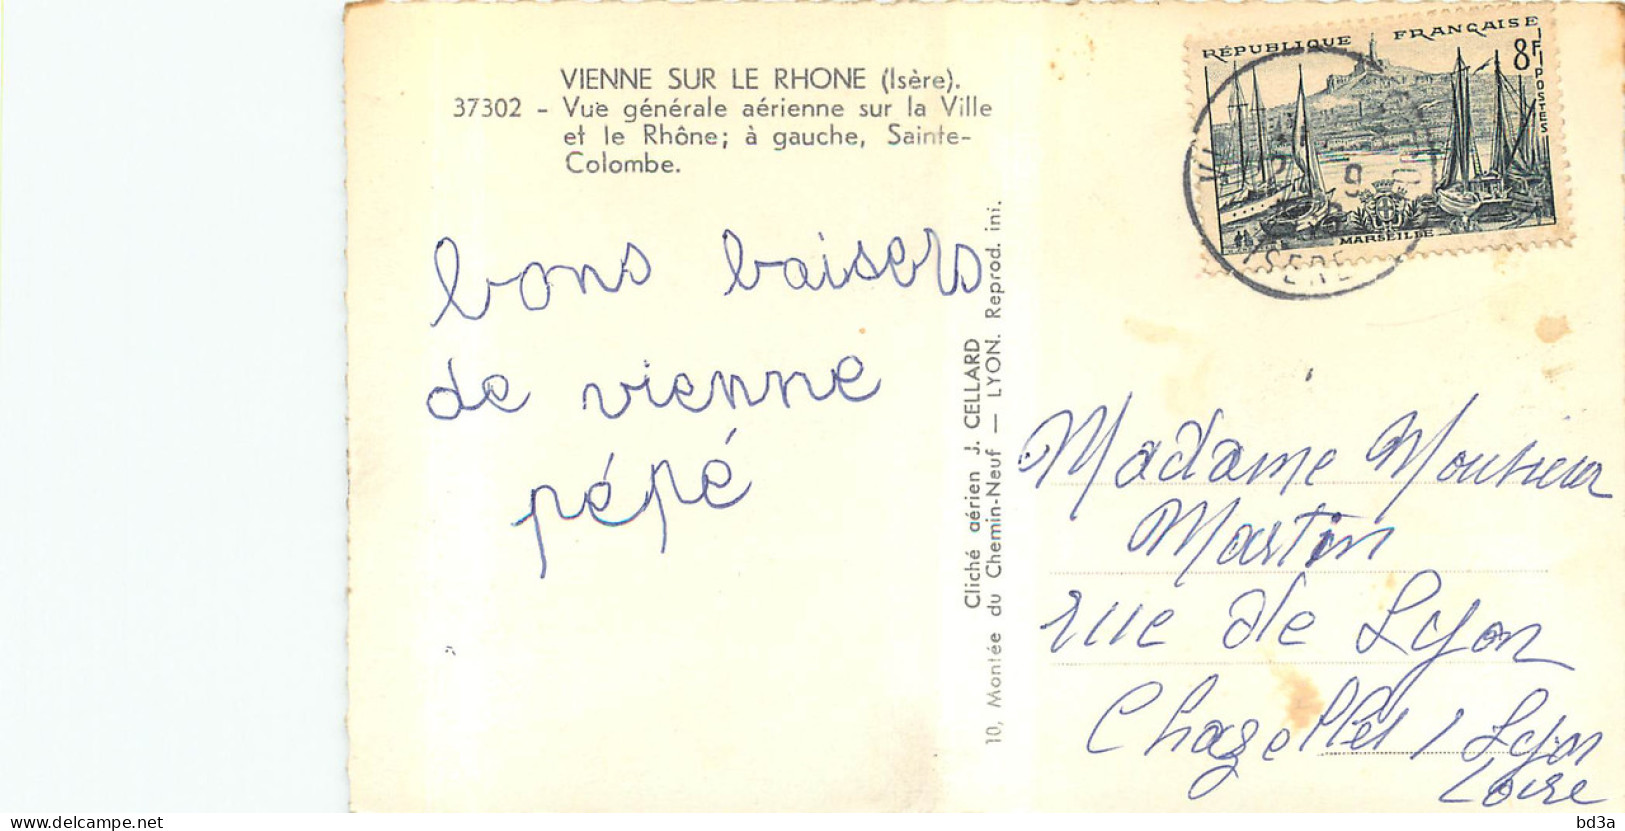 VIENNE SUR LE RHONE (Isère).
37302 - Vue générale aérienne sur la Ville
et le Rhône; à gauche, Sainte-
Colombe.
bons baisers
de vienne
pépé
Cliché aérien J. CELLARD
10, Montée du Chemin-Neuf — LYON. Reprod. ini.
RÉPUBLIQUE FRANÇAISE
8F
POSTES
MARSEILLE
ISERE
Madame Monsieur
Martin
rue de Lyon
Chazelles / Lyon
Loire
bd3a